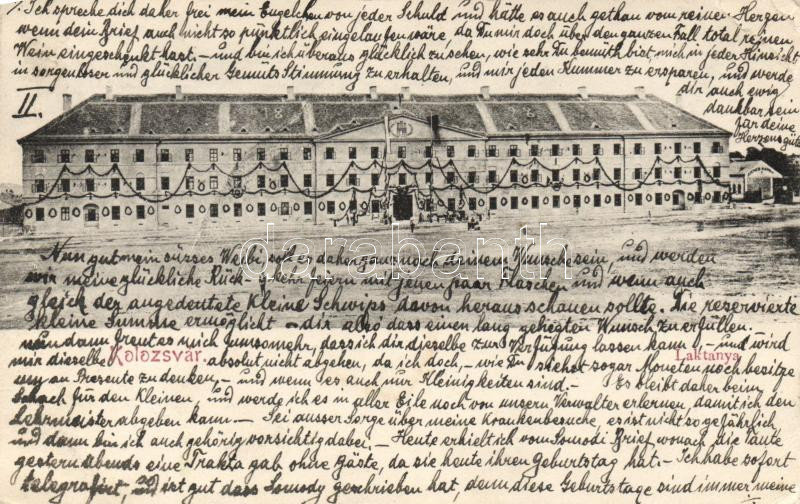 1. Ich spreche dich daher frei mein Engelchen von jeder Schuld und hätte es auch gethan vom reinen Herzen
wenn dein Brief auch nicht so pünktlich eingelaufen wäre da Du mir doch über den ganzen Fall total reinen
Wein eingeschenkt hast. – und bin ich überaus glücklich zu sehen, wie sehr Du bemüht bist mich in jeder Hinsicht
in sorgenloser und glücklicher Gemuts Stimmung zu erhalten, und mir jeden Kummer zu ersparen, und werde
dir auch ewig
dankbar sein
für deine
Herzensgüte
II.
Nun gut mein süsses Weibi, soll es daher ganz noch deinem Wunsche sein, und werden
wir meine glückliche Rück-kehr feiern mit jenen paar Flaschen und wenn auch
gleich der angedeutete Kleine Schwips davon heraus schauen sollte. Die reservierte
kleine Summe ermöglicht – dir also dass einen lang gehegten Wunsch zu erfüllen.
und dann freut es mich umsomehr, dass ich dir dieselbe zur Verfügung lassen kann, – und wird
mir dieselbe absolut nicht abgehen, da ich doch, – wie Du siehst sogar Moneten noch besitze
Kolozsvár.
Laktanya
um an Presente zu denken, – und wenn es auch nur Kleinigkeiten sind. – Es bleibt daher beim
für den Kleinen, und werde ich es in aller Eile noch von unsern Verwalter erlernen, damit ich den
Lehrmeister abgeben kann. – Sei ausser Sorge über meine Krankenbesuche, es ist nicht so gefährlich,
und dann bin ich auch gehörig vorsichtig dabei. – Heute erhielt ich vom Somodi Brief wonach die
gestern abends eine Trakta gab ohne Gäste, da sie heute ihren Geburtstag hat. – Ich habe sofort
telegrafirt, und ist gut dass Somody geschrieben hat, denn diese Geburtstage sind immer meine
darabanth